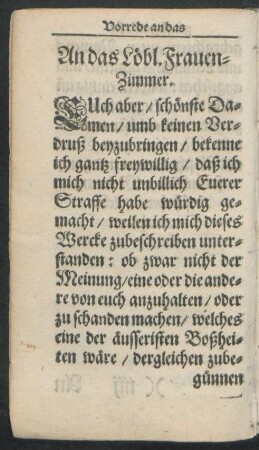 Vorrede an das
An das Löbl. Frauen-
Zimmer.
EUch aber / schönste Da-
men / umb keinen Ver-
druß beyzubringen / bekenne
ich gantz freywillig / daß ich
mich nicht unbillich Euerer
Straffe habe würdig ge-
macht / weilen ich mich dieses
Wercke zubeschreiben unter-
standen : ob zwar nicht der
Meinung / eine oder die ande-
re von euch anzuhalten / oder
zu schanden machen / welches
eine der äusseristen Boßhei-
ten wäre / dergleichen zube-
günnen